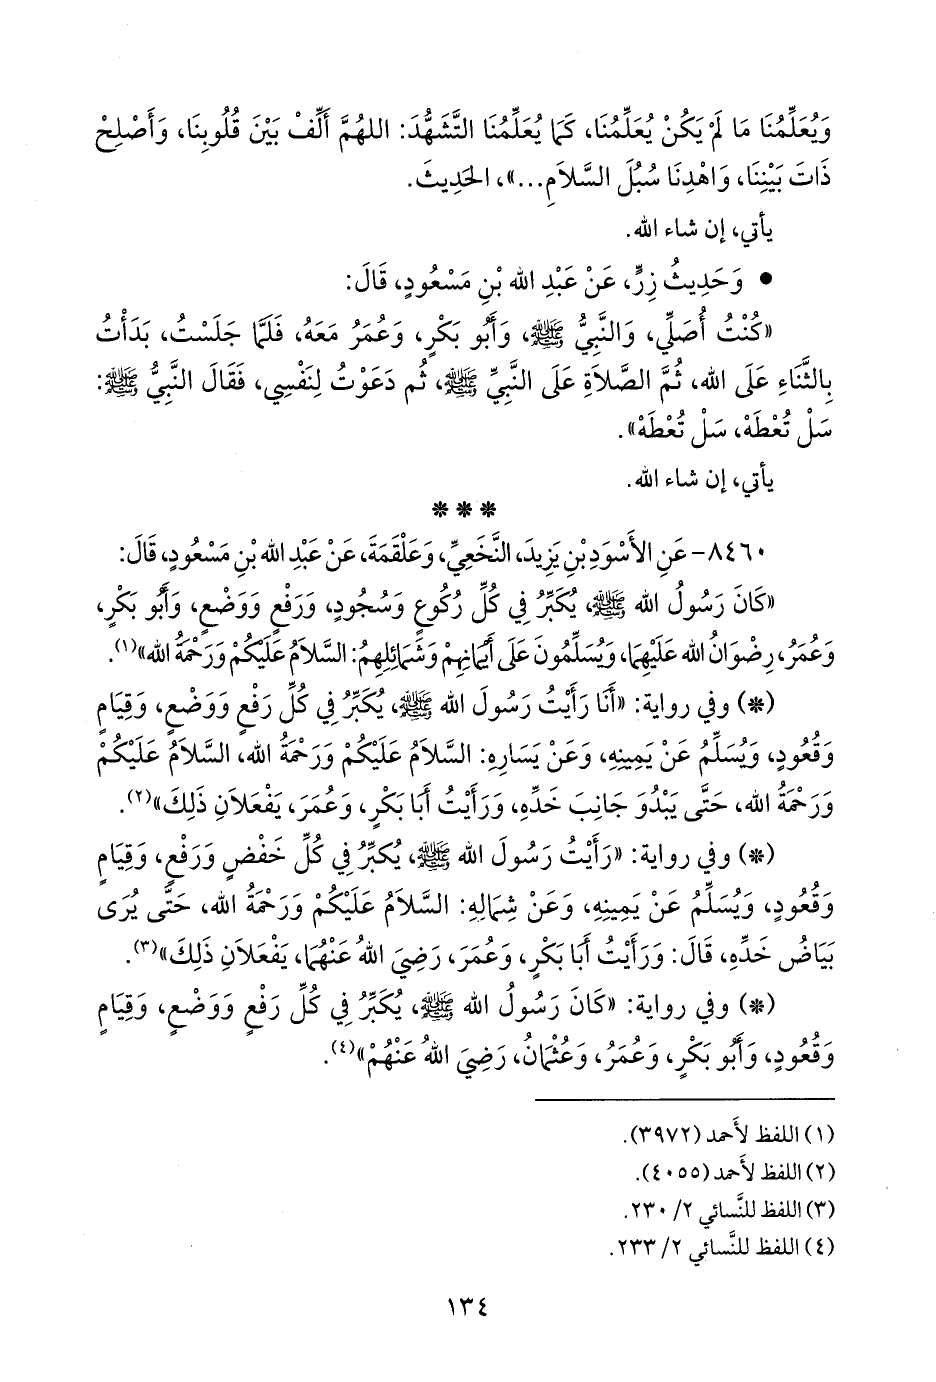 وَيُعَلِّمُنَا مَا لَمْ يَكُنْ يُعَلِّمُنَا، كَمَا يُعَلِّمُنَا التَّشَهُّدَ: اللهُمَّ أَلِّفْ بَيْنَ قُلُوبِنَا، وَأَصْلِحْ
ذَاتَ بَيْنِنَا، وَاهْدِنَا سُبُلَ السَّلاَمِ...»، الحَدِيثَ.
يأتي، إن شاء الله.
• وَحَدِيثُ زِرٍّ، عَنْ عَبْدِ الله بْنِ مَسْعُودٍ، قَالَ:
«كُنْتُ أُصَلِّي، وَالنَّبِيُّ ﷺ، وَأَبُو بَكْرٍ، وَعُمَرُ مَعَهُ، فَلَمَّا جَلَسْتُ، بَدَأْتُ
بِالثَّنَاءِ عَلَى الله، ثُمَّ الصَّلاَةِ عَلَى النَّبِيِّ ﷺ، ثُم دَعَوْتُ لِنَفْسِي، فَقَالَ النَّبِيُّ ﷺ:
سَلْ تُعْطَهْ، سَلْ تُعْطَهْ».
يأتي، إن شاء الله.
* * *
٨٤٦٠- عَنِ الأَسْوَدِ بْنِ يَزِيدَ، النَّخَعِيِّ، وَعَلْقَمَةَ، عَنْ عَبْدِ الله بْنِ مَسْعُودٍ، قَالَ:
«كَانَ رَسُولُ الله ﷺ، يُكَبِّرُ فِي كُلِّ رُكُوعٍ وَسُجُودٍ، وَرَفْعٍ وَوَضْعٍ، وَأَبُو بَكْرٍ،
وَعُمَرُ، رِضْوَانُ الله عَلَيْهِمَا، وَيُسَلِّمُونَ عَلَى أَيْمَانِهِمْ وَشَمَائِلِهِمُ: السَّلاَمُ عَلَيْكُمْ وَرَحْمَةُ الله»(١).
(*) وفي رواية: «أَنَا رَأَيْتُ رَسُولَ الله ﷺ، يُكَبِّرُ فِي كُلِّ رَفْعٍ وَوَضْعٍ، وَقِيَامٍ
وَقُعُودٍ، وَيُسَلِّمُ عَنْ يَمِينِهِ، وَعَنْ يَسَارِهِ: السَّلاَمُ عَلَيْكُمْ وَرَحْمَةُ الله، السَّلاَمُ عَلَيْكُمْ
وَرَحْمَةُ الله، حَتَّى يَبْدُوَ جَانِبَ خَدِّهِ، وَرَأَيْتُ أَبَا بَكْرٍ، وَعُمَرَ، يَفْعَلاَنِ ذَلِكَ»(٢).
(*) وفي رواية: «رَأَيْتُ رَسُولَ الله ﷺ، يُكَبِّرُ فِي كُلِّ خَفْضٍ وَرَفْعٍ، وَقِيَامٍ
وَقُعُودٍ، وَيُسَلِّمُ عَنْ يَمِينِهِ، وَعَنْ شِمَالِهِ: السَّلاَمُ عَلَيْكُمْ وَرَحْمَةُ الله، حَتَّى يُرَى
بَيَاضُ خَدِّهِ، قَالَ: وَرَأَيْتُ أَبَا بَكْرٍ، وَعُمَرَ، رَضِيَ اللهُ عَنْهُمَا، يَفْعَلاَنِ ذَلِكَ»(٣).
(*) وفي رواية: «كَانَ رَسُولُ الله ﷺ، يُكَبِّرُ فِي كُلِّ رَفْعٍ وَوَضْعٍ، وَقِيَامٍ
وَقُعُودٍ، وَأَبُو بَكْرٍ، وَعُمَرُ، وَعُثْمَانُ، رَضِيَ اللهُ عَنْهُمْ»(٤).
(١) اللفظ لأَحمد (٣٩٧٢).
(٢) اللفظ لأَحمد (٤٠٥٥).
(٣) اللفظ للنَّسائي ٢/ ٢٣٠.
(٤) اللفظ للنَّسائي ٢/ ٢٣٣.
١٣٤